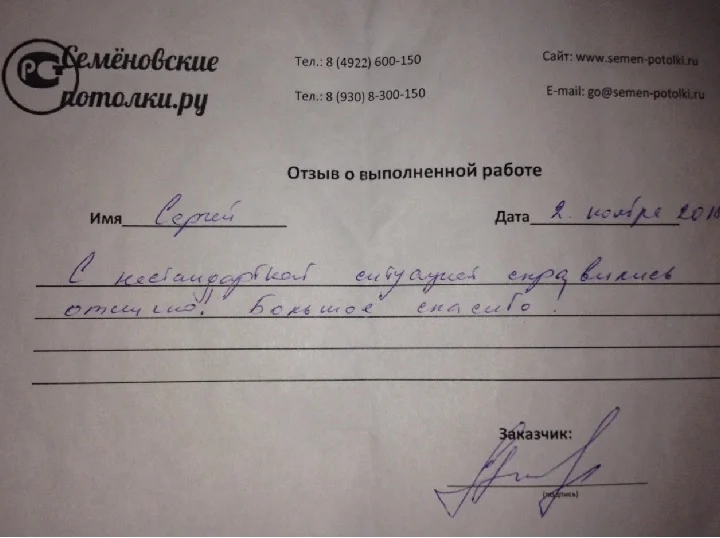 Семёновские
потолки.ру
РС
Тел.: 8 (4922) 600-150
Тел.: 8 (930) 8-300-150
Сайт: www.semen-potolki.ru
E-mail: go@semen-potolki.ru
Отзыв о выполненной работе
Имя Сергей
Дата 2. ноября
С нестандартной ситуацией справились
отлично! Большое спасибо!
Заказчик:
(подпись)